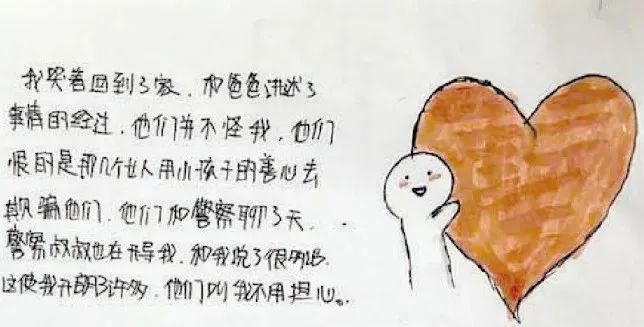 我哭着回到了家，和爸爸讲述了
事情的经过，他们并不怪我，他们
恨的是那几个女人用小孩子的善心去
欺骗他们，他们和警察聊了天，
警察叔叔也在开导我，和我说了很多话
这使我开朗了许多，他们叫我不用担心。